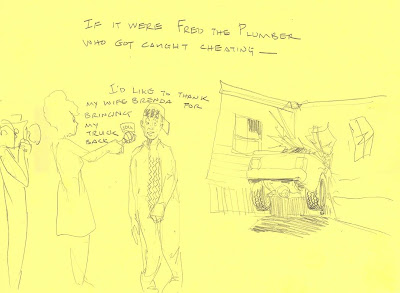 IF IT WERE FRED THE PLUMBER
WHO GOT CAUGHT CHEATING —
I'D LIKE TO THANK
MY WIFE BRENDA FOR
BRINGING
MY
TRUCK
BACK